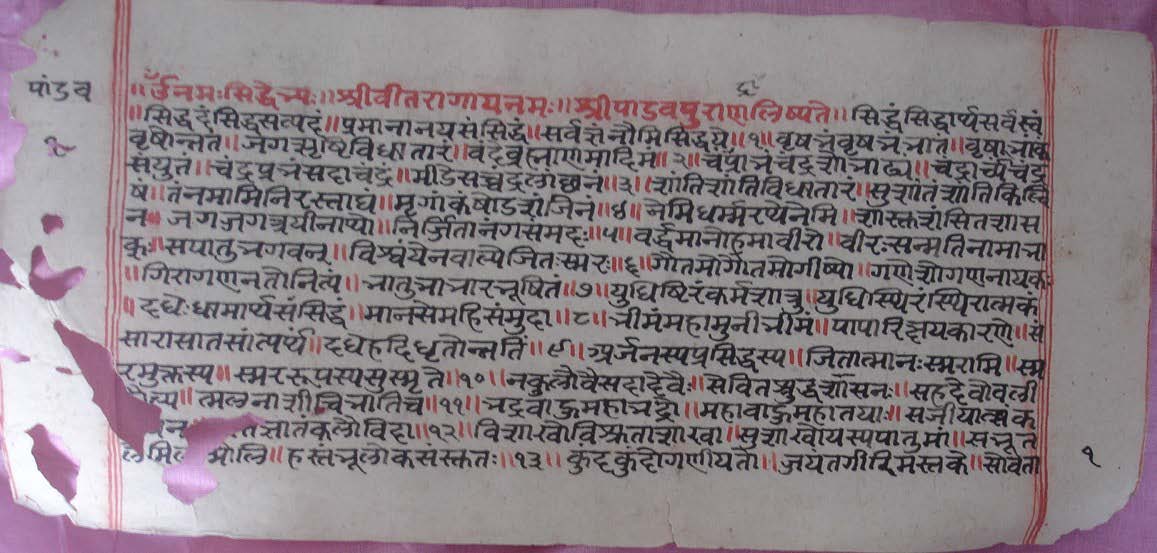 पांडव
॥ॐनमःसिद्धेभ्यः॥श्रीवीतरागायनमः॥श्रीपांडवपुराणलिष्यते॥सिद्धंसिद्धार्थसर्वस्वं
॥सिद्धिदंसिद्धसत्पदं॥प्रमानानयसंसिद्धं॥सर्वज्ञंनौमिसिद्धये॥१॥वृषभंवृषभंभांत॥वृषभांक
वृषोन्नतं॥जगत्सृष्टिविधातारं॥वंदेब्रह्माणमादिमं॥२॥चंद्राभंचंद्रशोभाढ्यं॥चंद्रार्च्यंचंद्र
संयुतं॥चंद्रप्रभंसदाचंद्रं॥मीडेसच्चंद्रलांछनं॥३॥शांतिंशांतिविधातारं॥सुशांतंशांतिकिल्वि
षं॥तंनमामिनिरस्ताघं॥मृगांकंषोडशंजिनं॥४॥नेमिर्धर्म्मरथेनेमि॥शास्तुशंसितशास
न॥जगज्जगत्त्रयीनाथो॥निर्जितानंगसंमदः॥५॥वर्द्धमानोहमावीरो॥वीरःसन्मतिनामभा
क्॥सपातुभगवन्॥विश्वंयेनबाल्येजितःस्मरः॥६॥गौतमोगौतमोगीष्पो॥गणेशोगणनायकः
॥गिरागणनतोनित्यं॥भातुभाभारभूषितं॥७॥युधिष्ठिरंकर्मशत्रु॥युधिस्थिरंस्थिरात्मकं
॥दधेःधामार्थसंसिद्धं॥मानसेमहिसंमुदा॥८॥भीमंमहामुनीभीमं॥पापारिक्षयकारणे॥सं
सारासातसांत्यर्थं॥दधेहृदिधृतोन्नतिं॥९॥अर्जनस्यप्रसिद्धस्य॥जितात्मानःस्मरामि॥स्म
रमुक्तस्य॥स्मररूपस्यसुस्मृते॥१०॥नकुलौवैसदादेवैः॥सेवितशुद्धशासनः॥सहदेवोवली
त्य॥त्मलनाशीविभातिच॥११॥भद्रवाहुमहाभद्रो॥महावाहुमहातपाः॥सजीयात्सक
ज्ञातकलोविदा॥१२॥विशाखोविश्रुताशाखा॥सुशाखोयस्यपातुमां॥सभूत
मौलि॥हस्तभूलोकसंस्तुतः॥१३॥कुंदकुंदोगणीयेतो॥जयंतगीरिमस्तके॥सोवता
१